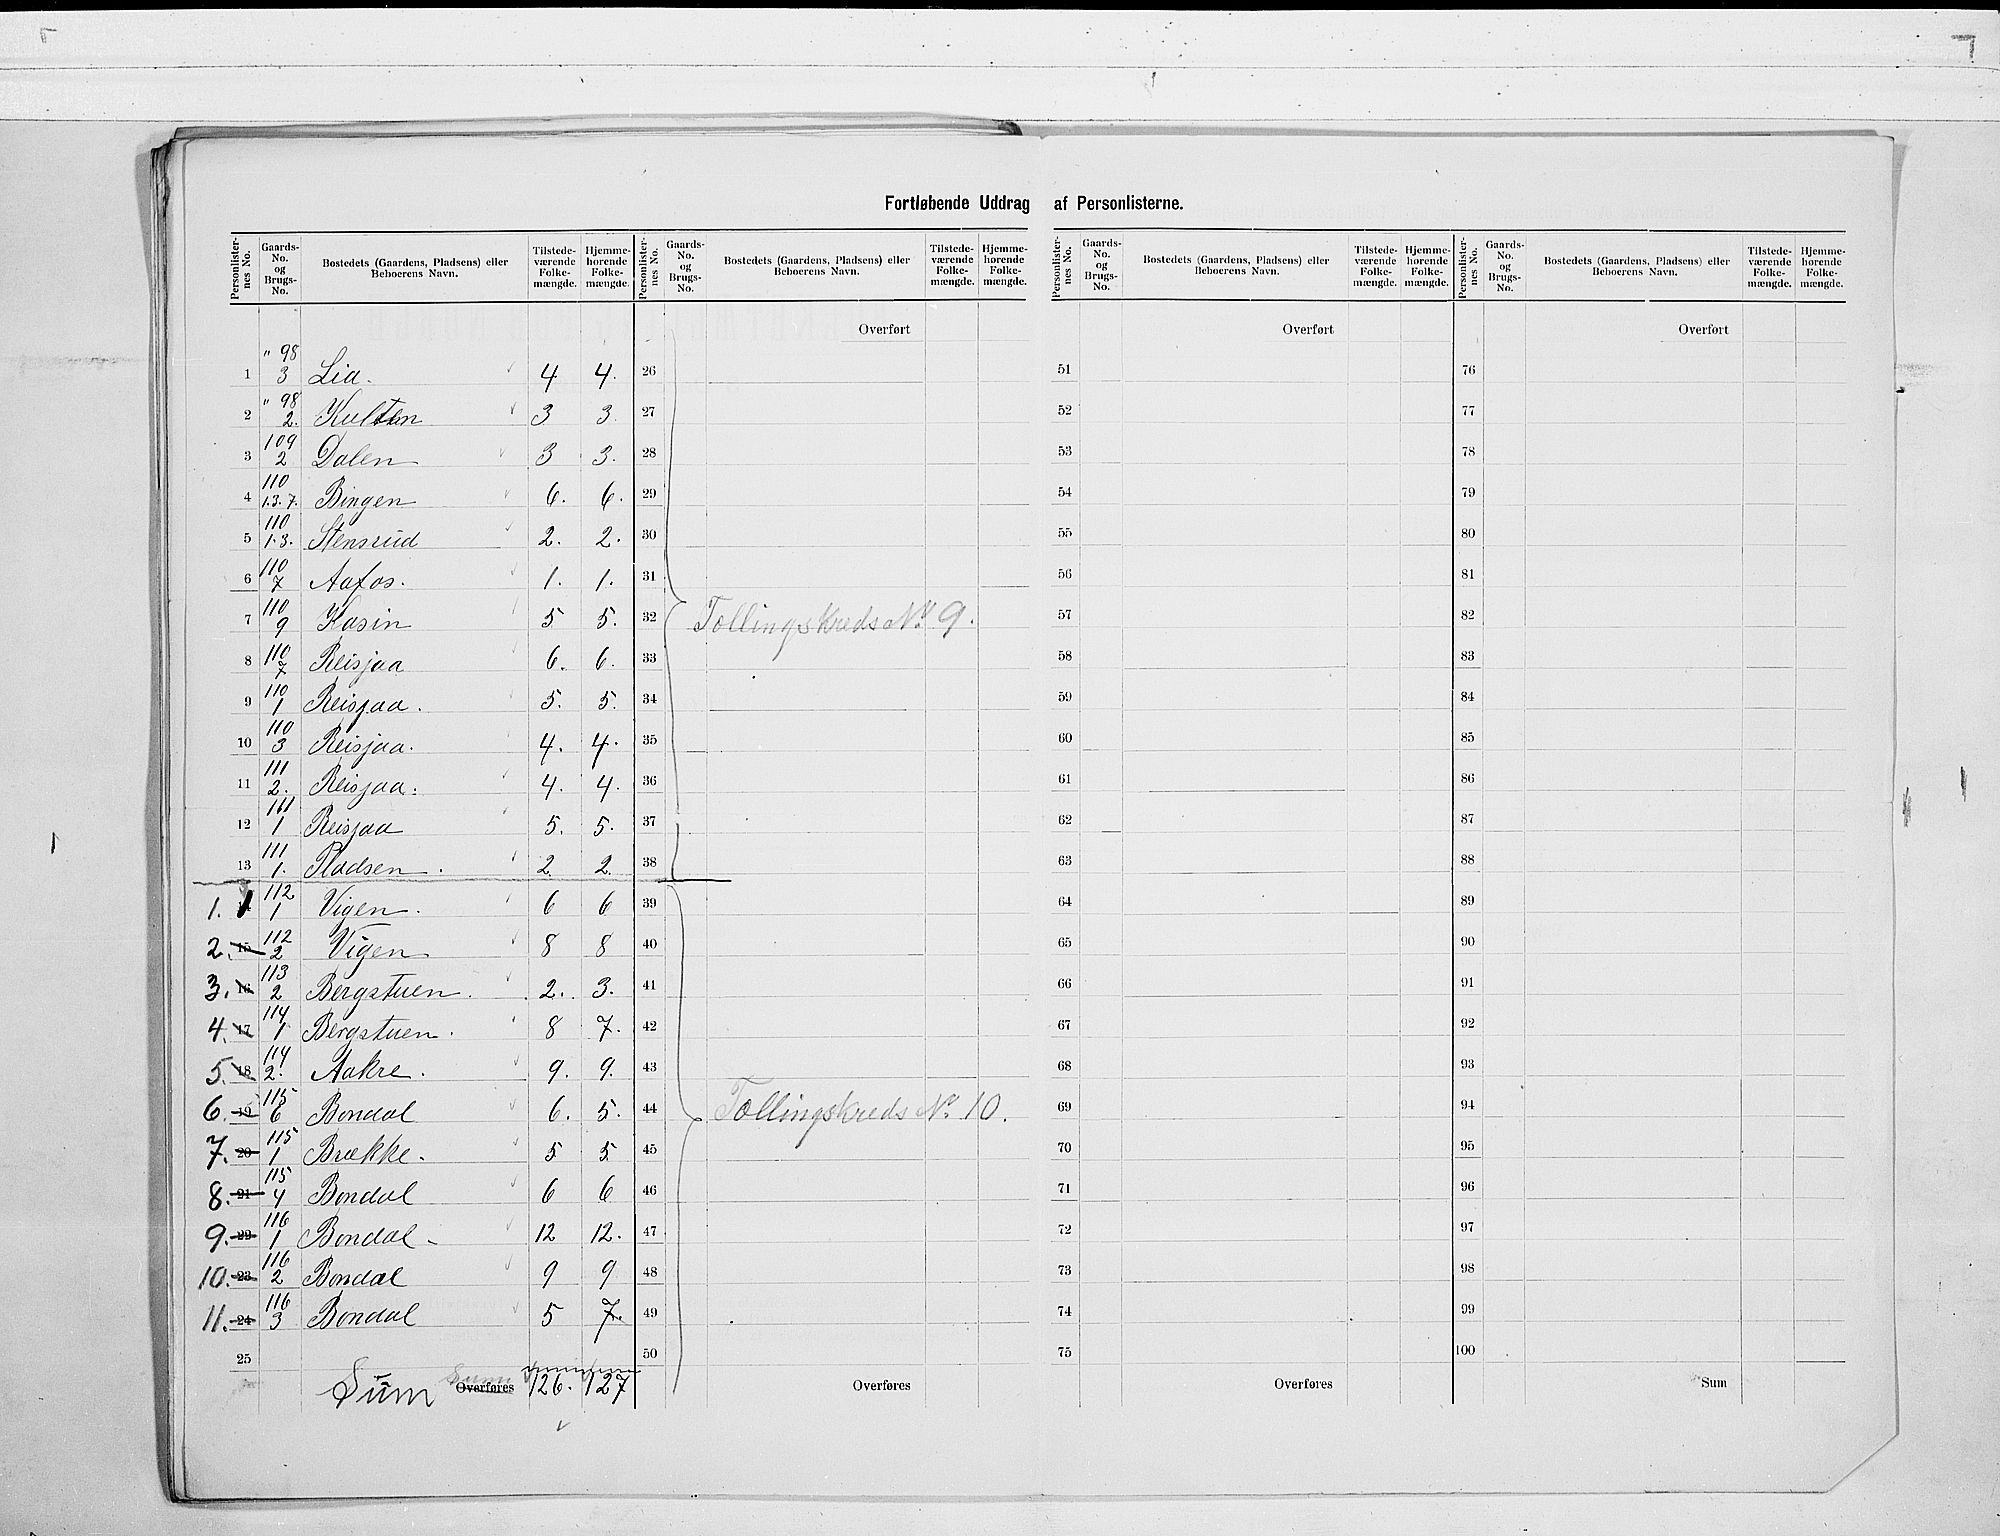 Fortløbende Uddrag af Personlisterne.
Personlister-nes No. | Gaards-No. og Brugs-No. | Bostedets (Gaardens, Pladsens) eller Beboerens Navn. | Tilstede-værende Folke-mængde. | Hjemme-hørende Folke-mængde. | Personlister-nes No. | Gaards-No. og Brugs-No. | Bostedets (Gaardens, Pladsens) eller Beboerens Navn. | Tilstede-værende Folke-mængde. | Hjemme-hørende Folke-mængde. | Personlister-nes No. | Gaards-No. og Brugs-No. | Bostedets (Gaardens, Pladsens) eller Beboerens Navn. | Tilstede-værende Folke-mængde. | Hjemme-hørende Folke-mængde. | Personlister-nes No. | Gaards-No. og Brugs-No. | Bostedets (Gaardens, Pladsens) eller Beboerens Navn. | Tilstede-værende Folke-mængde. | Hjemme-hørende Folke-mængde.
Overført Overført Overført
1 " 98 3 Lia. 4 4. 26 51 76
2 " 98 2. Kultan 3 3. 27 52 77
3 109 2 Dalen 3 3. 28 53 78
4 110 1.3.7. Bingen 6. 6. 29 54 79
5 110 1.3. Stensrud 2. 2. 30 55 80
6 110 7 Aafos. 1. 1. 31 56 81
7 110 9 Kasin 5 5. 32 Tællingskreds No 9. 57 82
8 110 7 Reisjaa 6. 6. 33 58 83
9 110 1 Reisjaa. 5. 5. 34 59 84
10 110 3 Reisjaa. 4. 4. 35 60 85
11 111 2. Reisjaa. 4. 4. 36 61 86
12 111 1 Reisjaa 5. 5. 37 62 87
13 111 1. Pladsen. 2 2. 38 63 88
1. 14 112 1 Vigen. 6 6 39 64 89
2. 15 112 2 Vigen 8 8 40 65 90
3. 16 113 2 Bergstuen. 2. 3. 41 66 91
4. 17 114 1 Bergstuen. 8 7. 42 67 92
5. 18 114 2. Aakre. 9. 9. 43 68 93
6. 19 115 6 Bondal 6. 5. 44 Tællingskreds No. 10. 69 94
7. 20 115 1 Brække. 5 5 45 70 95
8. 21 115 4 Bondal 6 6 46 71 96
9. 22 116 1 Bondal 12 12. 47 72 97
10. 23 116 2 Bondal 9 9 48 73 98
11. 24 116 3 Bondal 5 7. 49 74 99
25 50 75 100
Sum Sum Overføres 126. 127 Overføres Overføres Sum